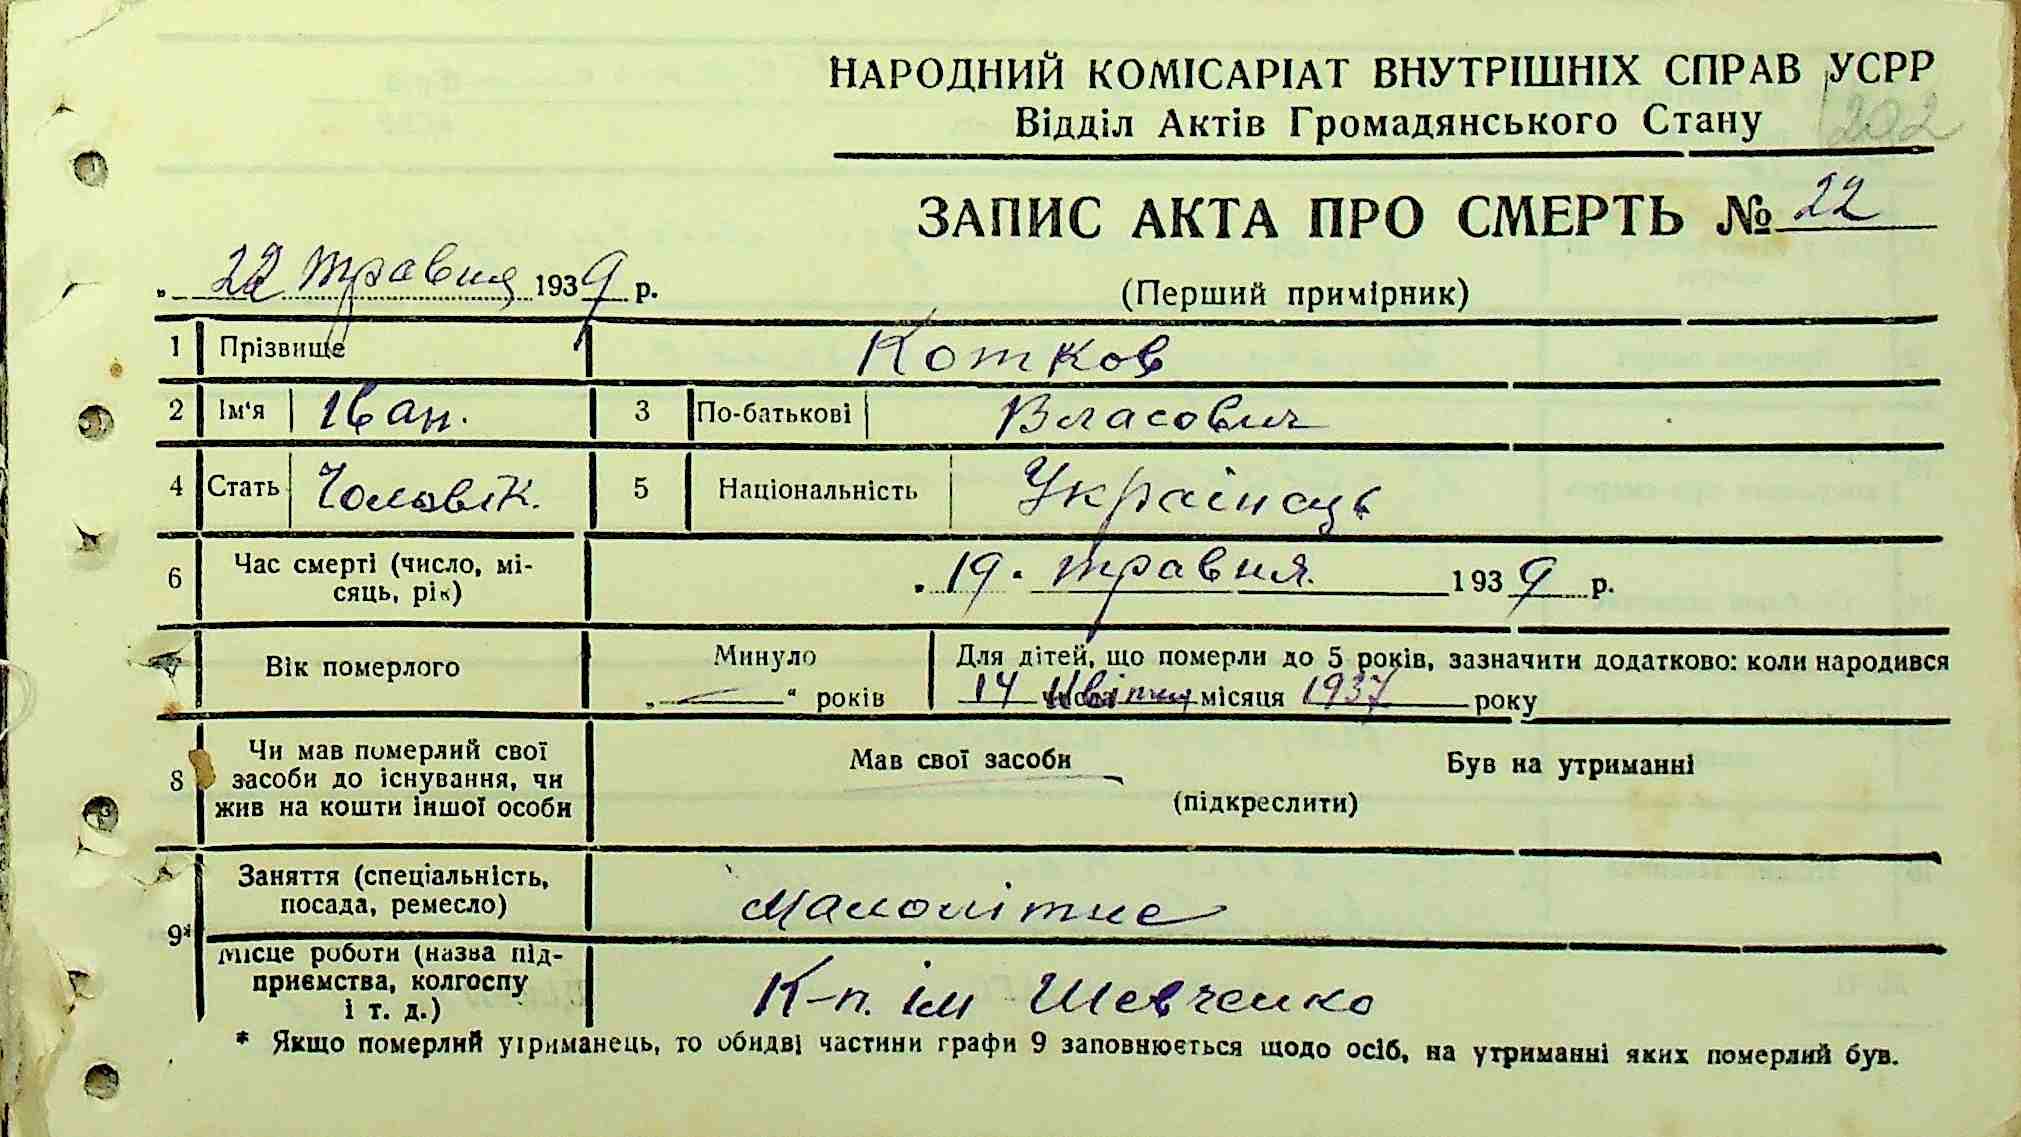 НАРОДНИЙ КОМІСАРІАТ ВНУТРІШНІХ СПРАВ УСРР
Відділ Актів Громадянського Стану
202
ЗАПИС АКТА ПРО СМЕРТЬ № 22
„ 22 травня 1939 р.
(Перший примірник)
1 Прізвище Котков
2 Ім'я Іван. 3 По-батькові Власович
4 Стать Чоловік. 5 Національність Українець
6 Час смерті (число, мі-
сяць, рік) „ 19. травня. 1939 р.
7 Вік померлого Минуло Для дітей, що померли до 5 років, зазначити додатково: коли народився
„ — “ років 14 числа квітня місяця 1937 року
8 Чи мав померлий свої
засоби до існування, чи
жив на кошти іншої особи
Мав свої засоби Був на утриманні
(підкреслити)
9* Заняття (спеціальність,
посада, ремесло) Малолітне
Місце роботи (назва під-
приємства, колгоспу
і т. д.) К-п. ім Шевченко
* Якщо померлий утриманець, то обидві частини графи 9 заповнюється щодо осіб, на утриманні яких померлий був.